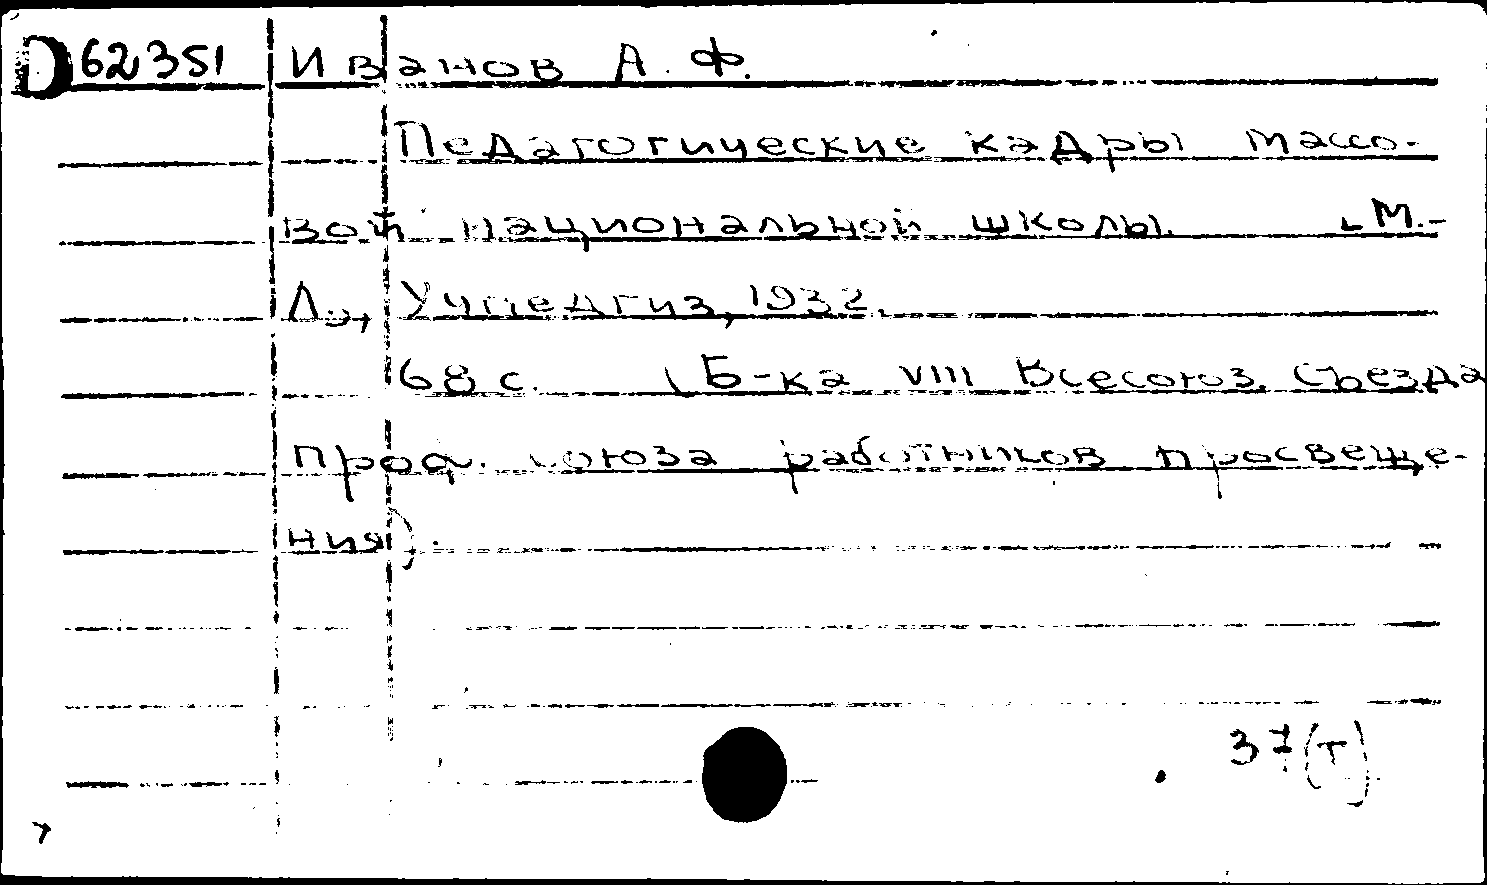 D 62351 Иванов А. Ф.
Педагогические кадры массо-
вой национальной школы. М.-
Л., Учпедгиз, 1932.
68 с. (Б-ка VIII Всесоюз. съезда
проф. союза работников просвеще-
ния).
37(Т)